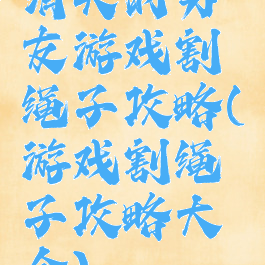 消失的好
友游戏割
绳子攻略(
游戏割绳
子攻略大
全)